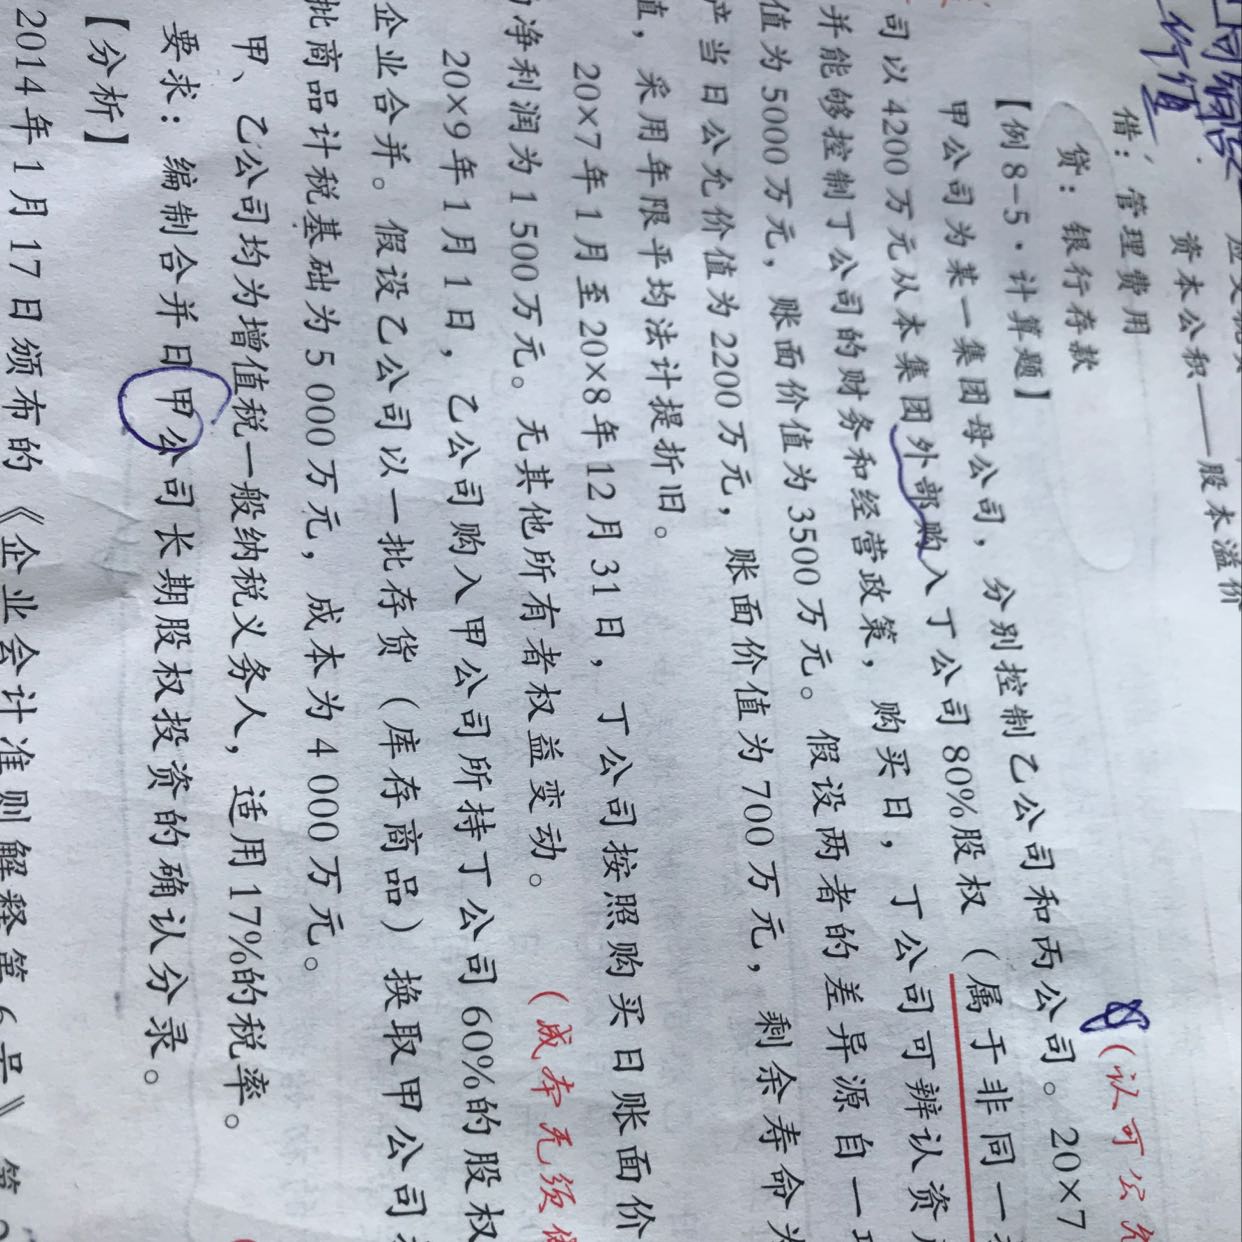 价值
资本公积——股本溢价
借：管理费用
贷：银行存款
【例8-5·计算题】
(认可公允
甲公司为某一集团母公司，分别控制乙公司和丙公司。20×7
司以4200万元从本集团外部购入丁公司80%股权（属于非同一
并能够控制丁公司的财务和经营政策，购买日，丁公司可辨认资产
值为5000万元，账面价值为3500万元。假设两者的差异源自一项
产当日公允价值为2200万元，账面价值为700万元，剩余寿命为
值，采用年限平均法计提折旧。
20×7年1月至20×8年12月31日，丁公司按照购买日账面价
净利润为1500万元。无其他所有者权益变动。
(成本无须
20×9年1月1日，乙公司购入甲公司所持丁公司60%的股权
企业合并。假设乙公司以一批存货（库存商品）换取甲公司
批商品计税基础为5000万元，成本为4000万元。
甲、乙公司均为增值税一般纳税义务人，适用17%的税率。
要求：编制合并日甲公司长期股权投资的确认分录。
【分析】
2014年1月17日颁布的《企业会计准则解释第6号》第